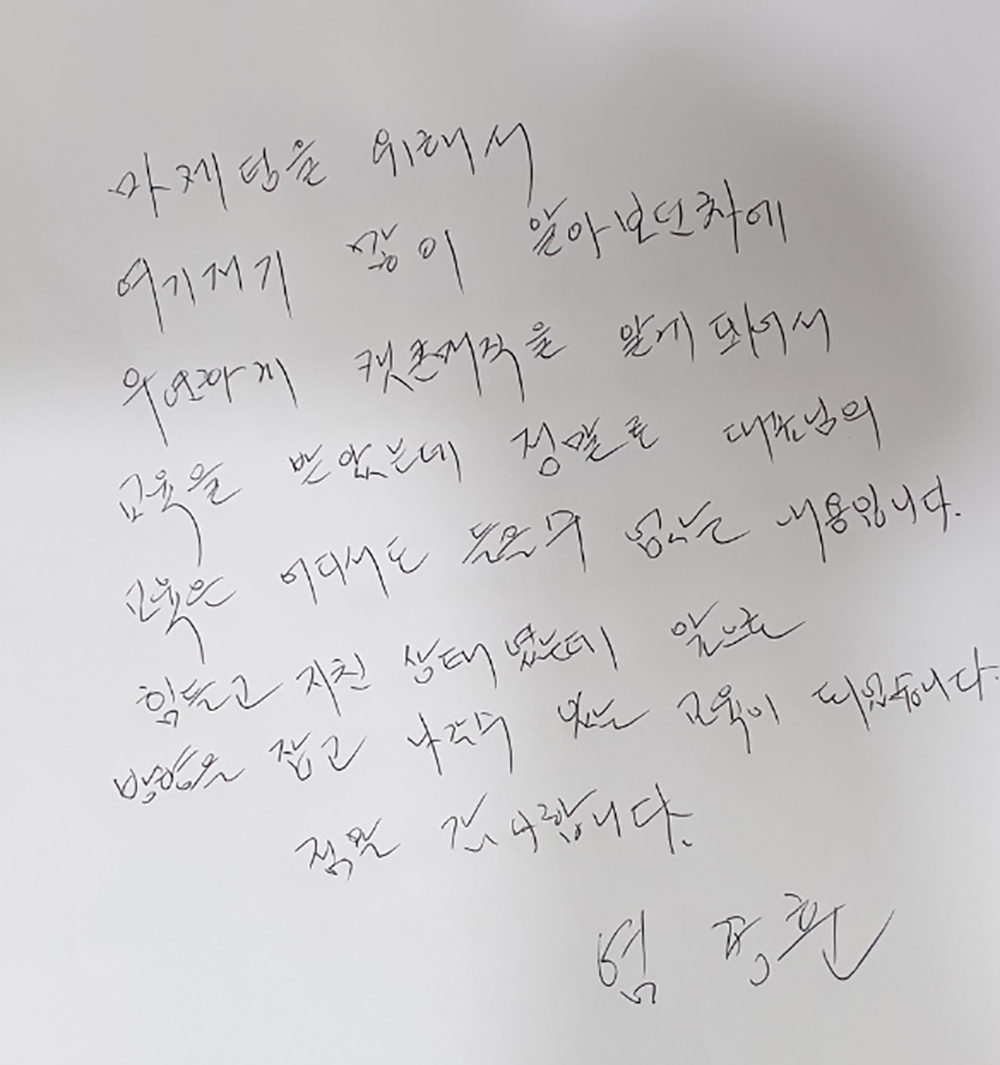 마케팅을 위해서
여기저기 많이 알아보던차에
우연하게 을 알게 되어서
교육을 받았는데 정말로 대표님의
교육은 어디서도 들을수 없는 내용입니다.
힘들고 지친 상태였는데 앞으로
방향을 잡고 나갈수 있는 교육이 되었습니다.
정말 감사합니다.